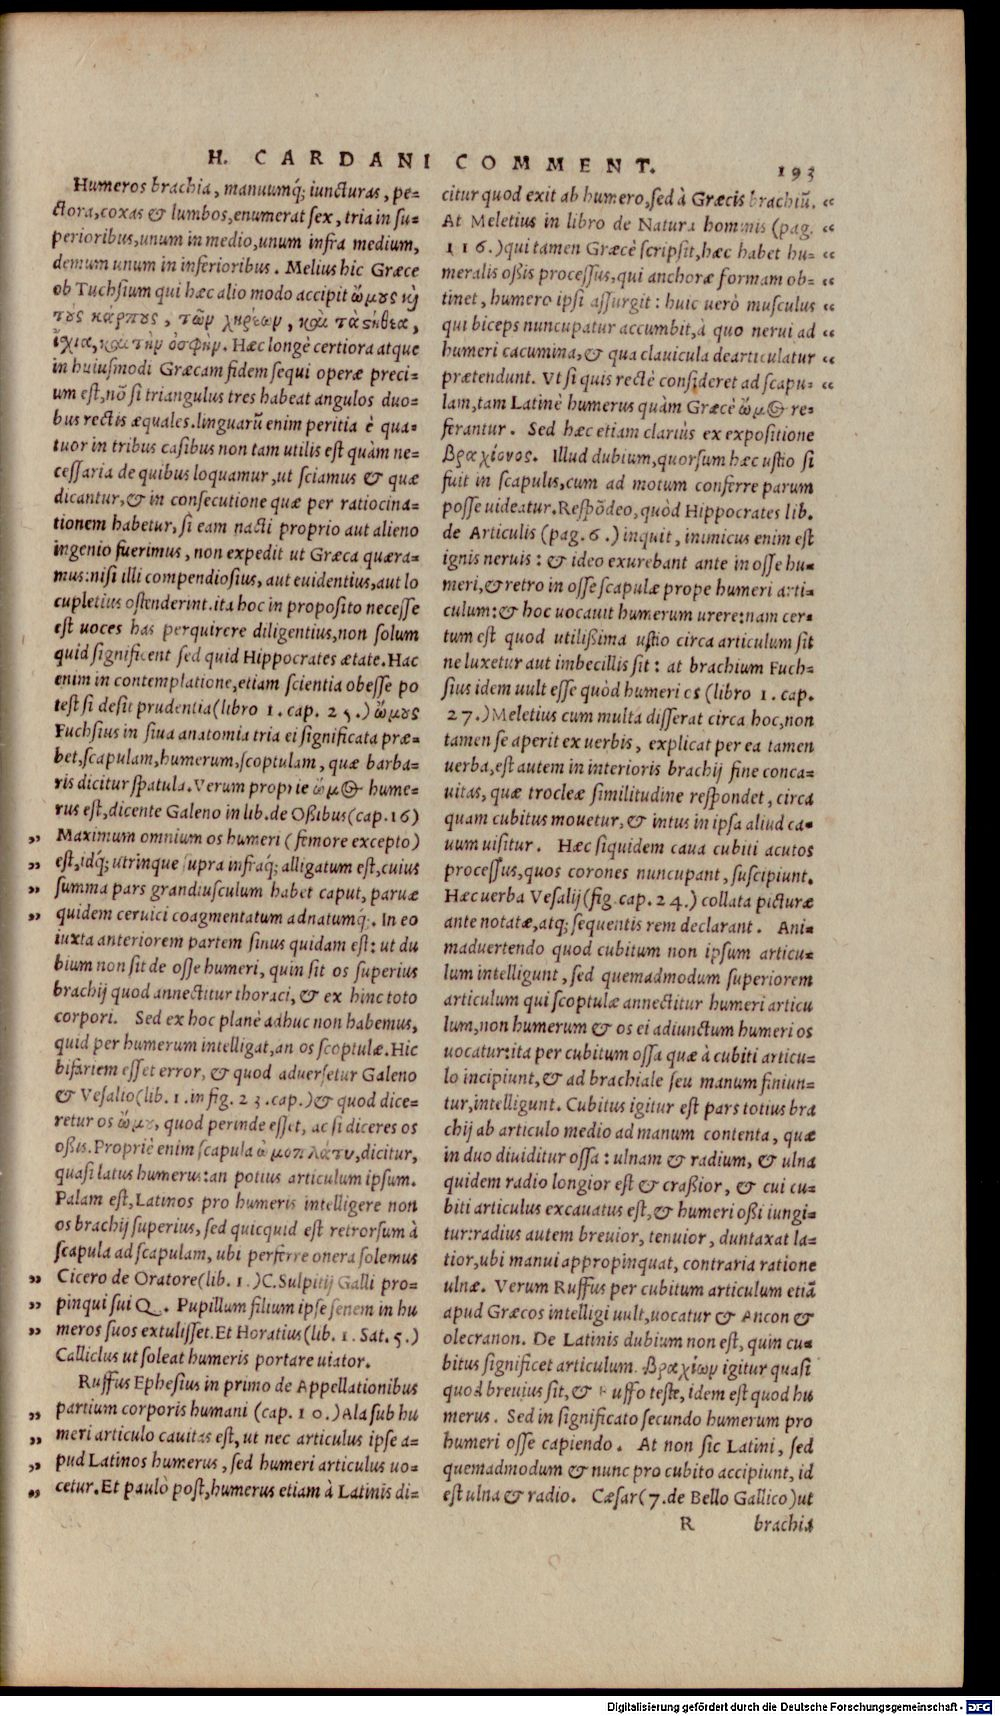 H. CARDANI COMMENT. 193
Humeros brachia, manuumq́; iuncturas, pe-
ctora, coxas & lumbos, enumerat sex, tria in su-
perioribus, unum in medio, unum infra medium,
demum unum in inferioribus. Melius hic Græce
ob Tuchsium qui hæc alio modo accipit ὤμους κὶ
τοὺς κάρπους, τῶν χηρέων, καὶ τὰ στήθεα,
ἴσχια, καὶ τὴν ὀσφὴν. Hæc longè certiora atque
in huiusmodi Græcam fidem sequi operæ preci-
um est, nõ si triangulus tres habeat angulos duo-
bus rectis æquales. linguarũ enim peritia è qua-
tuor in tribus casibus non tam utilis est quàm ne-
cessaria de quibus loquamur, ut sciamus & quæ
dicantur, & in consecutione quæ per ratiocina-
tionem habetur, si eam nacti proprio aut alieno
ingenio fuerimus, non expedit ut Græca quæra-
mus: nisi illi compendiosius, aut euidentius, aut lo
cupletius ostenderint. ita hoc in proposito necesse
est uoces has perquirere diligentius, non solum
quid significent sed quid Hippocratis ætate. Hac
enim in contemplatione, etiam scientia obesse po
test si desit prudentia (libro 1. cap. 25.) ὤμους
Fuchsius in siua anatomia tria ei significata præ-
bet, scapulam, humerum, scoptulam, quæ barba-
ris dicitur spatula. Verum proprie ὤμος hume-
rus est, dicente Galeno in lib. de Oßibus (cap. 16)
„ Maximum omnium os humeri (femore excepto)
„ est, idq́; utrinque supra infraq́; alligatum est, cuius
„ summa pars grandiusculum habet caput, paruæ
„ quidem ceruici coagmentatum adnatumq́;. In eo
iuxta anteriorem partem sinus quidam est: ut du
bium non sit de osse humeri, quin sit os superius
brachij quod annectitur thoraci, & ex hinc toto
corpori. Sed ex hoc planè adhuc non habemus,
quid per humerum intelligat, an os scoptulæ. Hic
bifariem esset error, & quod aduersetur Galeno
& Vesalio (lib. 1. in fig. 23. cap.) & quod dice-
retur os ὤμου, quod perinde esset, ac si diceres os
oßis. Propriè enim scapula ὠμοπλάτυ, dicitur,
quasi latus humerus: an potius articulum ipsum.
Palam est, Latinos pro humeris intelligere non
os brachij superius, sed quicquid est retrorsum à
scapula ad scapulam, ubi perferre onera solemus
„ Cicero de Oratore (lib. 1.) C. Sulpitij Galli pro-
„ pinqui sui Q. Pupillum filium ipse senem in hu
„ meros suos extulisset. Et Horatius (lib. 1. Sat. 5.)
Calliclus ut soleat humeris portare uiator.
Ruffus Ephesius in primo de Appellationibus
„ partium corporis humani (cap. 10.) Ala sub hu
„ meri articulo cauitas est, ut nec articulus ipse a-
„ pud Latinos humerus, sed humeri articulus uo-
„ cetur. Et paulò post, humerus etiam à Latinis di-
citur quod exit ab humero, sed à Græcis brachiũ. “
At Meletius in libro de Natura hominis (pag. “
116.) qui tamen Græcè scripsit, hæc habet hu- “
meralis oßis processus, qui anchoræ formam ob- “
tinet, humero ipsi assurgit: huic uerò musculus “
qui biceps nuncupatur accumbit, à quo nerui ad “
humeri cacumina, & qua clauicula dearticulatur “
prætendunt. Vt si quis rectè consideret ad scapu- “
lam, tam Latinè humerus quàm Græcè ὤμος re-
ferantur. Sed hæc etiam clariùs ex expositione
βραχίονος. Illud dubium, quorsum hæc ustio si
fuit in scapulis, cum ad motum conferre parum
posse uideatur. Respõdeo, quòd Hippocrates lib.
de Articulis (pag. 6.) inquit, inimicus enim est
ignis neruis: & ideo exurebant ante in osse hu-
meri, & retro in osse scapulæ prope humeri arti-
culum: & hoc uocauit humerum urere: nam cer-
tum est quod utilißima ustio circa articulum sit
ne luxetur aut imbecillis sit: at brachium Fuch-
sius idem uult esse quòd humeri os (libro 1. cap.
27.) Meletius cum multa disserat circa hoc, non
tamen se aperit ex uerbis, explicat per ea tamen
uerba, est autem in interioris brachij fine conca-
uitas, quæ trocleæ similitudine respondet, circa
quam cubitus mouetur, & intus in ipsa aliud ca-
uum uisitur. Hæc siquidem caua cubiti acutos
processus, quos corones nuncupant, suscipiunt.
Hæc uerba Vesalij (fig. cap. 24.) collata picturæ
ante notatæ, atq́; sequentis rem declarant. Ani-
maduertendo quod cubitum non ipsum articu-
lum intelligunt, sed quemadmodum superiorem
articulum qui scoptulæ annectitur humeri articu
lum, non humerum & os ei adiunctum humeri os
uocatur: ita per cubitum ossa quæ à cubiti articu-
lo incipiunt, & ad brachiale seu manum finiun-
tur, intelligunt. Cubitus igitur est pars totius bra
chij ab articulo medio ad manum contenta, quæ
in duo diuiditur ossa: ulnam & radium, & ulna
quidem radio longior est & craßior, & cui cu-
biti articulus excauatus est, & humeri oßi iungi-
tur: radius autem breuior, tenuior, duntaxat la-
tior, ubi manui appropinquat, contraria ratione
ulnæ. Verum Ruffus per cubitum articulum etiã
apud Græcos intelligi uult, uocatur & Ancon &
olecranon. De Latinis dubium non est, quin cu-
bitus significet articulum. βραχίων igitur quasi
quod breuius sit, & Ruffo teste, idem est quod hu
merus. Sed in significato secundo humerum pro
humeri osse capiendo. At non sic Latini, sed
quemadmodum & nunc pro cubito accipiunt, id
est ulna & radio. Cæsar (7. de Bello Gallico) ut
R brachia
Digitalisierung gefördert durch die Deutsche Forschungsgemeinschaft - DFG